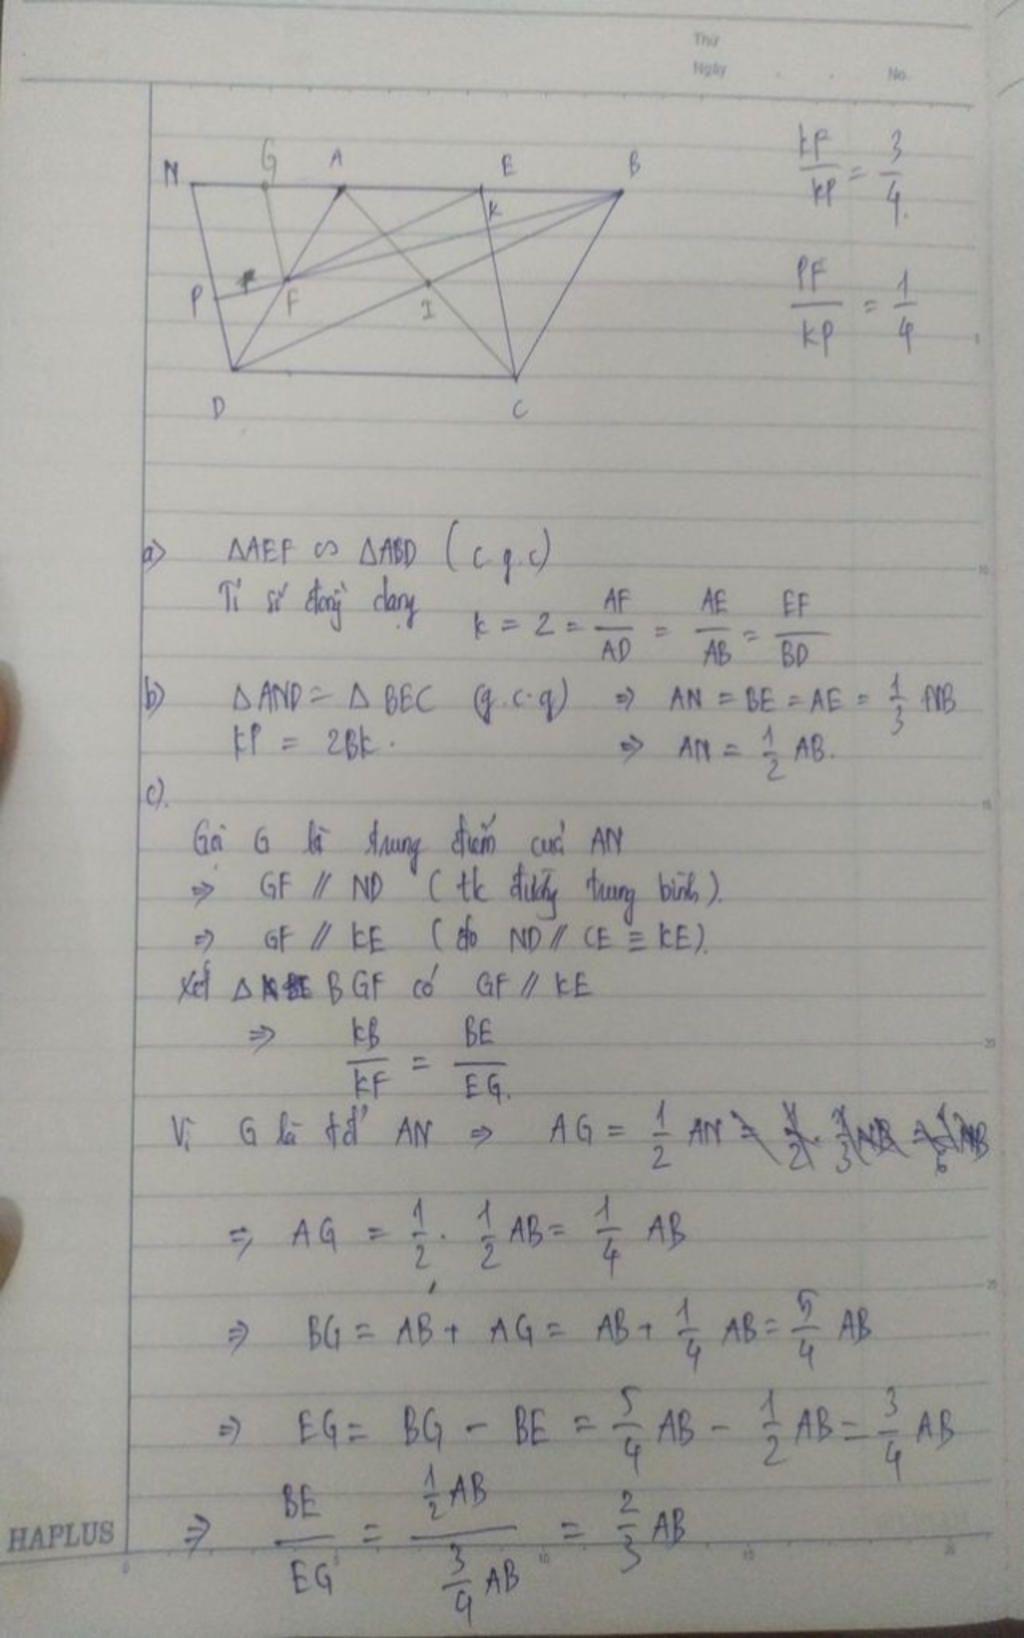 Thứ
Ngày . . No.
N G A E B
K
P F I
D C
KF/KP = 3/4.
PF/KP = 1/4
a) ΔAEF ∽ ΔABD (c.g.c)
Tỉ số đồng dạng k = 2 = AF/AD = AE/AB = EF/BD
b) ΔAND = ΔBEC (g.c.g) ⇒ AN = BE = AE = 1/3 NB
KP = 2BK. ⇒ AN = 1/2 AB.
c).
Gọi G là trung điểm của AN
⇒ GF // ND (tc đường trung bình).
⇒ GF // KE (do ND // CE ≡ KE).
Xét Δ BGF có GF // KE
⇒ KB/KF = BE/EG.
Vì G là tđ AN ⇒ AG = 1/2 AN
⇒ AG = 1/2 . 1/2 AB = 1/4 AB
⇒ BG = AB + AG = AB + 1/4 AB = 5/4 AB
⇒ EG = BG - BE = 5/4 AB - 1/2 AB = 3/4 AB
⇒ BE/EG = 1/2 AB / 3/4 AB = 2/3 AB
HAPLUS